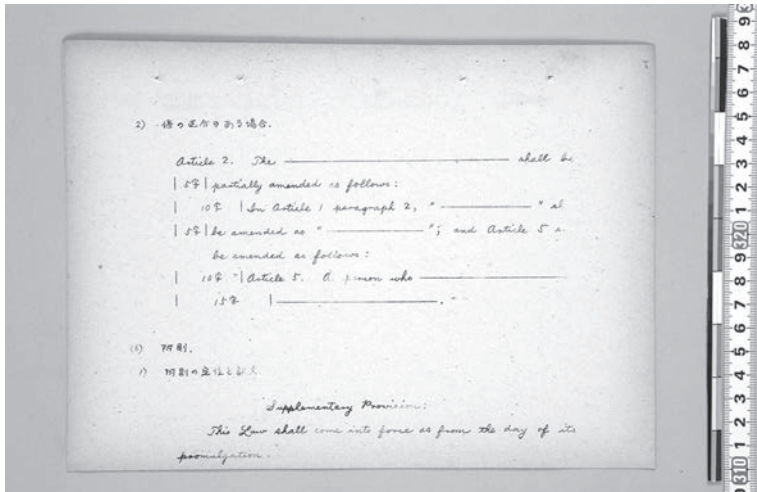 2) の区分のある場合.
Article 2. The ———— shall be
| 5字 | partially amended as follows:
| 10字 | In Article 1 paragraph 2, "————"
| 5字 | be amended as "————"; and Article 5
be amended as follows:
| 10字 "| Article 5. A person who ————
| 15字 | ————."
附則.
1) 附則の
Supplementary Provision:
This Law shall come into force as from the day of its
promulgation.
9
8
7
6
5
4
3
2
1
320
9
8
7
6
5
4
3
2
1
310